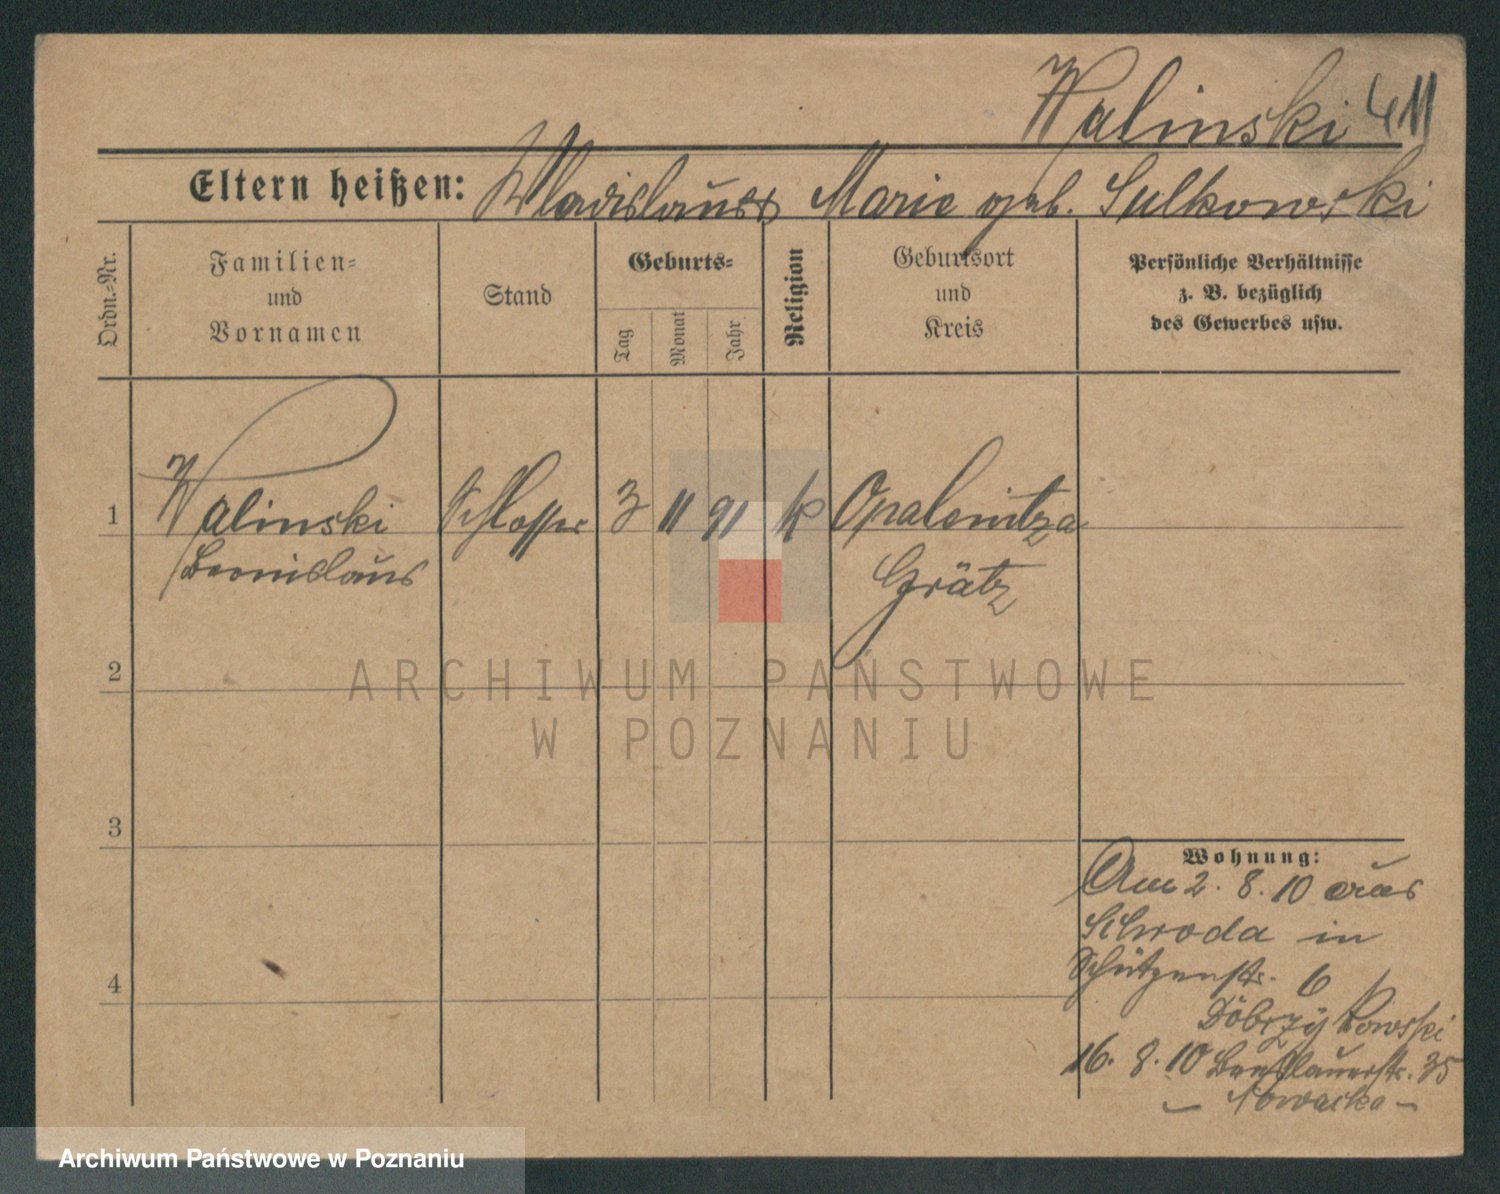 Walinski 411
Eltern heißen: Wladislaus Marie geb. Sulkowski
Ordn.-Nr.
Familien-
und
Vornamen
Stand
Geburts-
Tag
Monat
Jahr
Religion
Geburtsort
und
Kreis
Persönliche Verhältnisse
z. B. bezüglich
des Gewerbes usw.
1 Walinski Schlosser 3 11 91 k Opalenitza
Bronislaus Grätz
2
3
4
Wohnung:
Am 2. 8. 10 aus
Schroda in
Schützenstr. 6
16. 8. 10 Breslauerstr. 35
– Nowacka –
ARCHIWUM PAŃSTWOWE
W POZNANIU
Archiwum Państwowe w Poznaniu